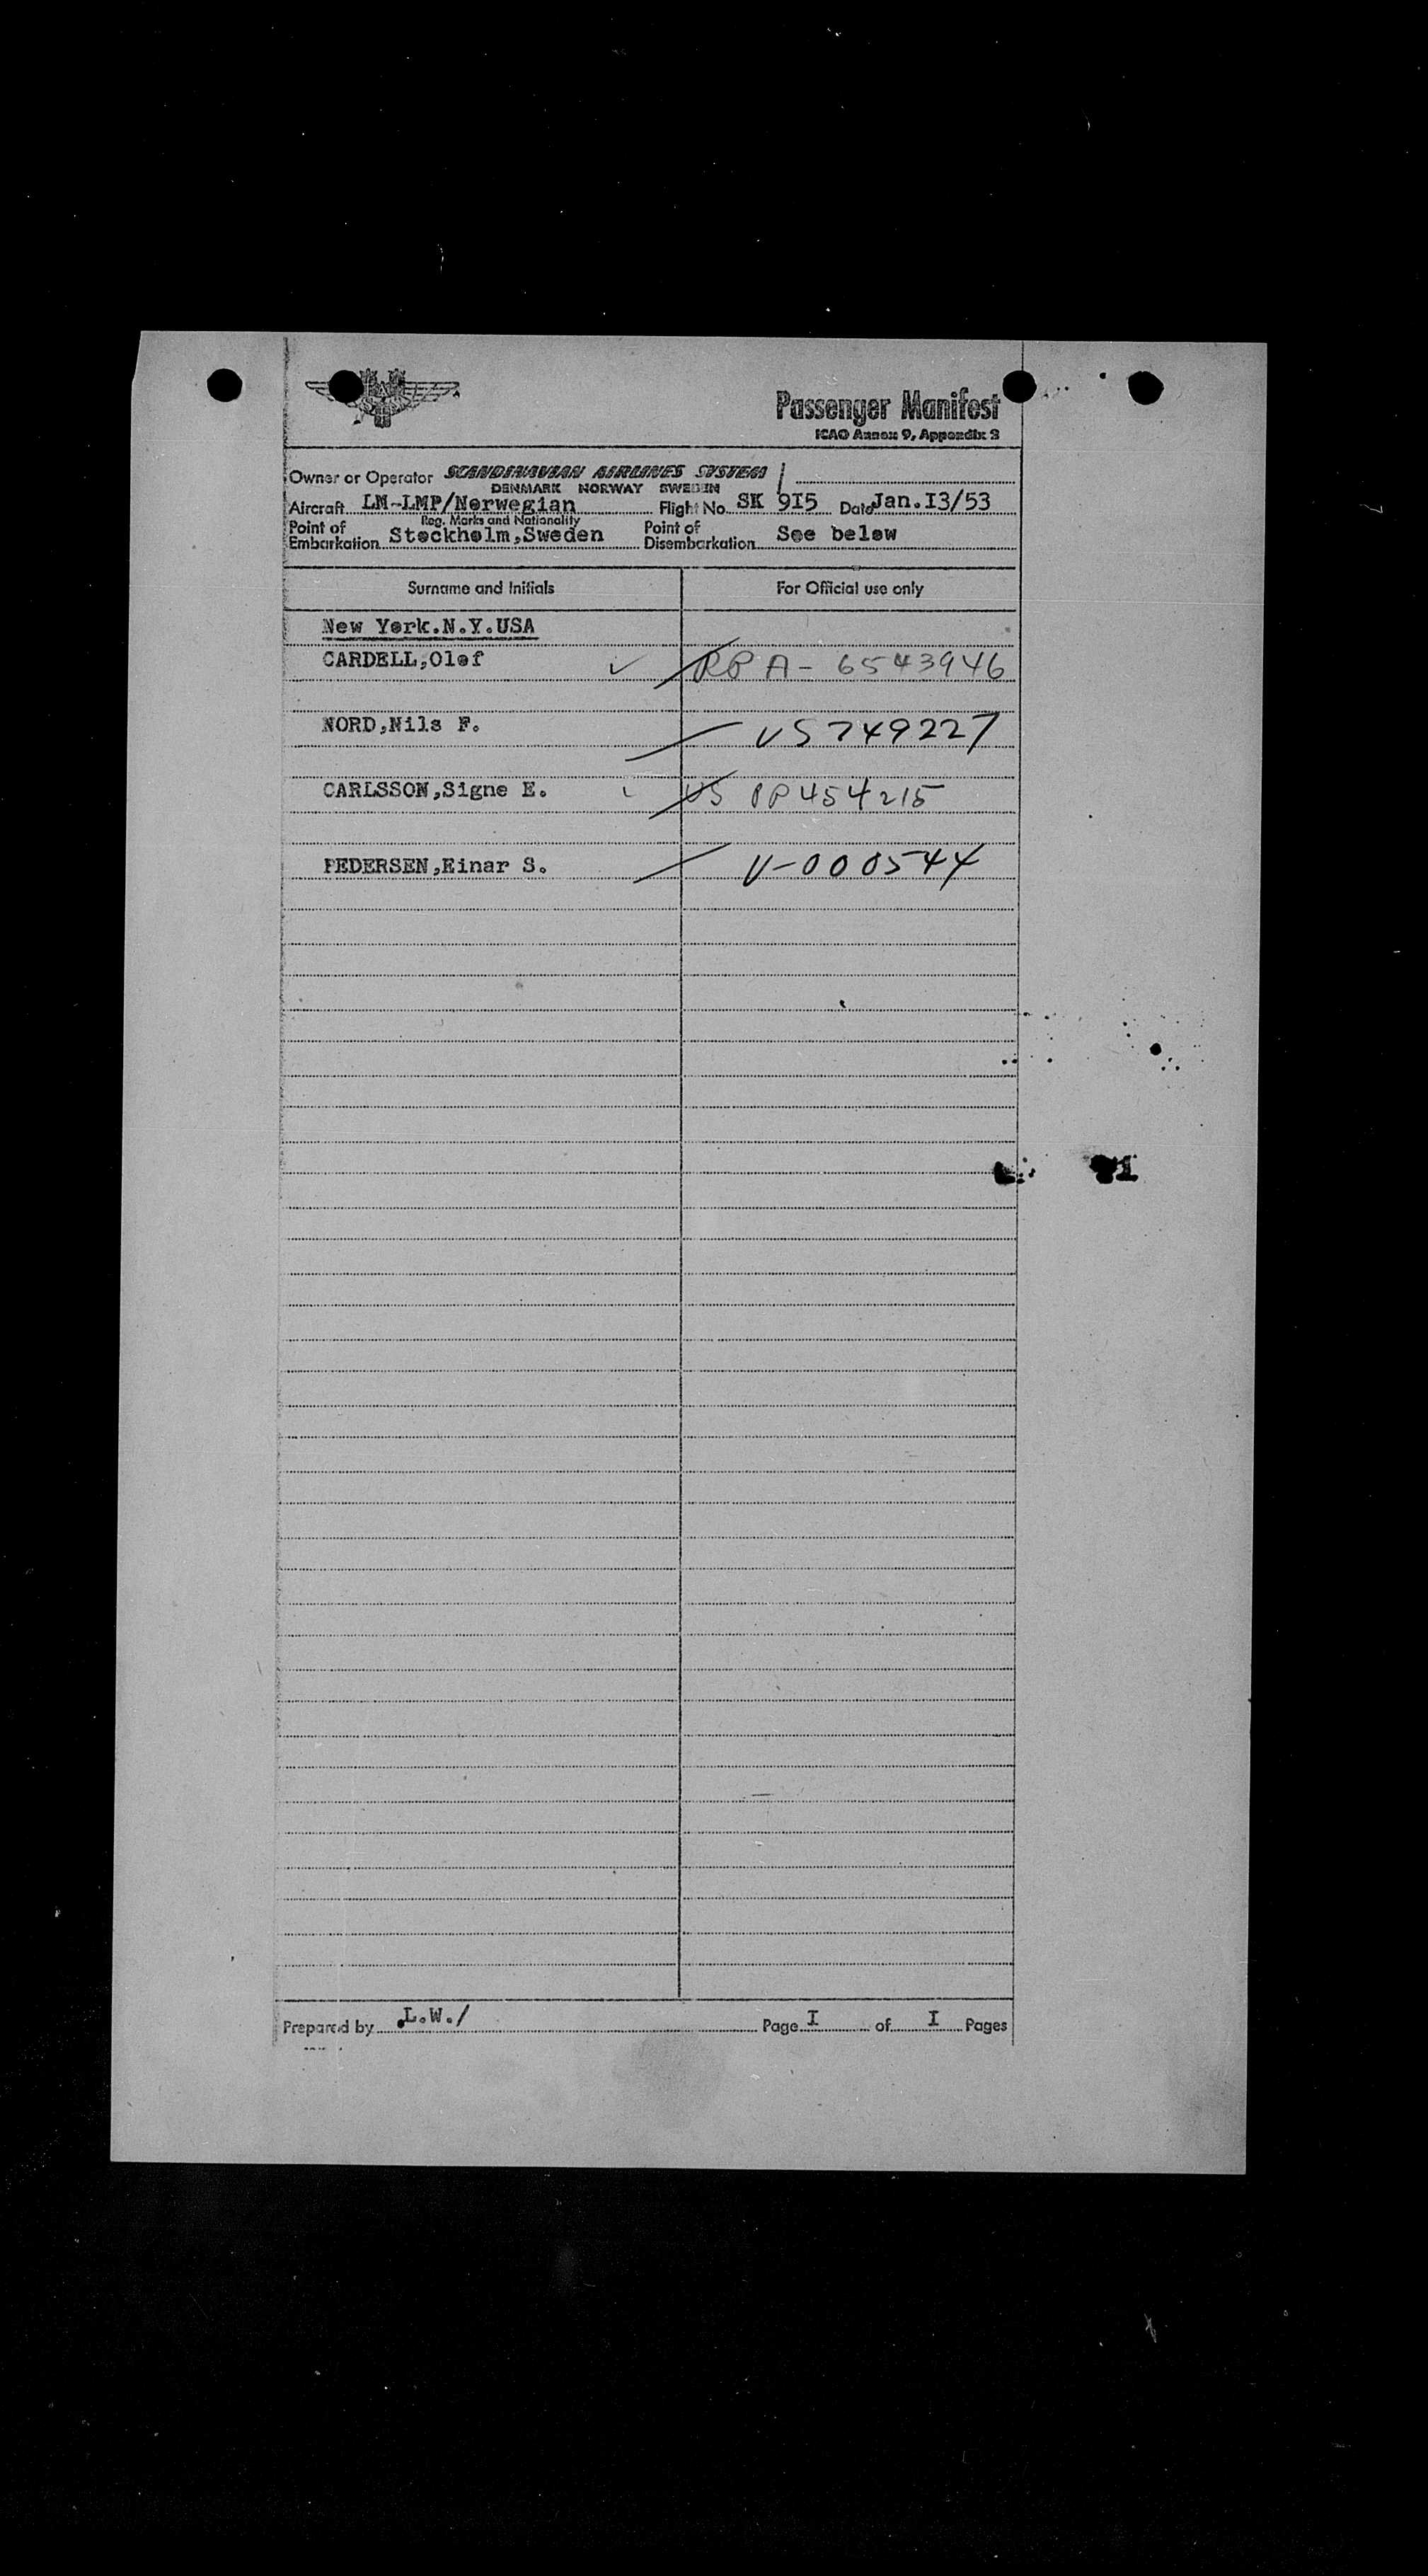 Passenger Manifest
ICAO Annex 9, Appendix 3
Owner or Operator SCANDINAVIAN AIRLINES SYSTEM
DENMARK NORWAY SWEDEN
Aircraft LM-LMP/Norwegian Flight No. SK 9I5 Date Jan.I3/53
Reg. Marks and Nationality
Point of Embarkation Stockholm,Sweden Point of Disembarkation See below
Surname and Initials For Official use only
New York.N.Y.USA
CARDELL,Olof ✓ RP A- 6543946
NORD,Nils F. V5749227
CARLSSON,Signe E. US PP454215
PEDERSEN,Einar S. V-000544
Prepared by L.W./ Page I of I Pages